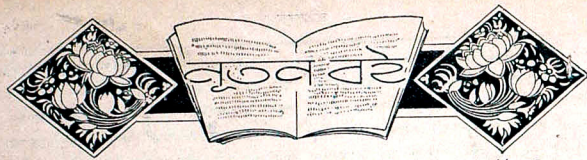 নূতন বই